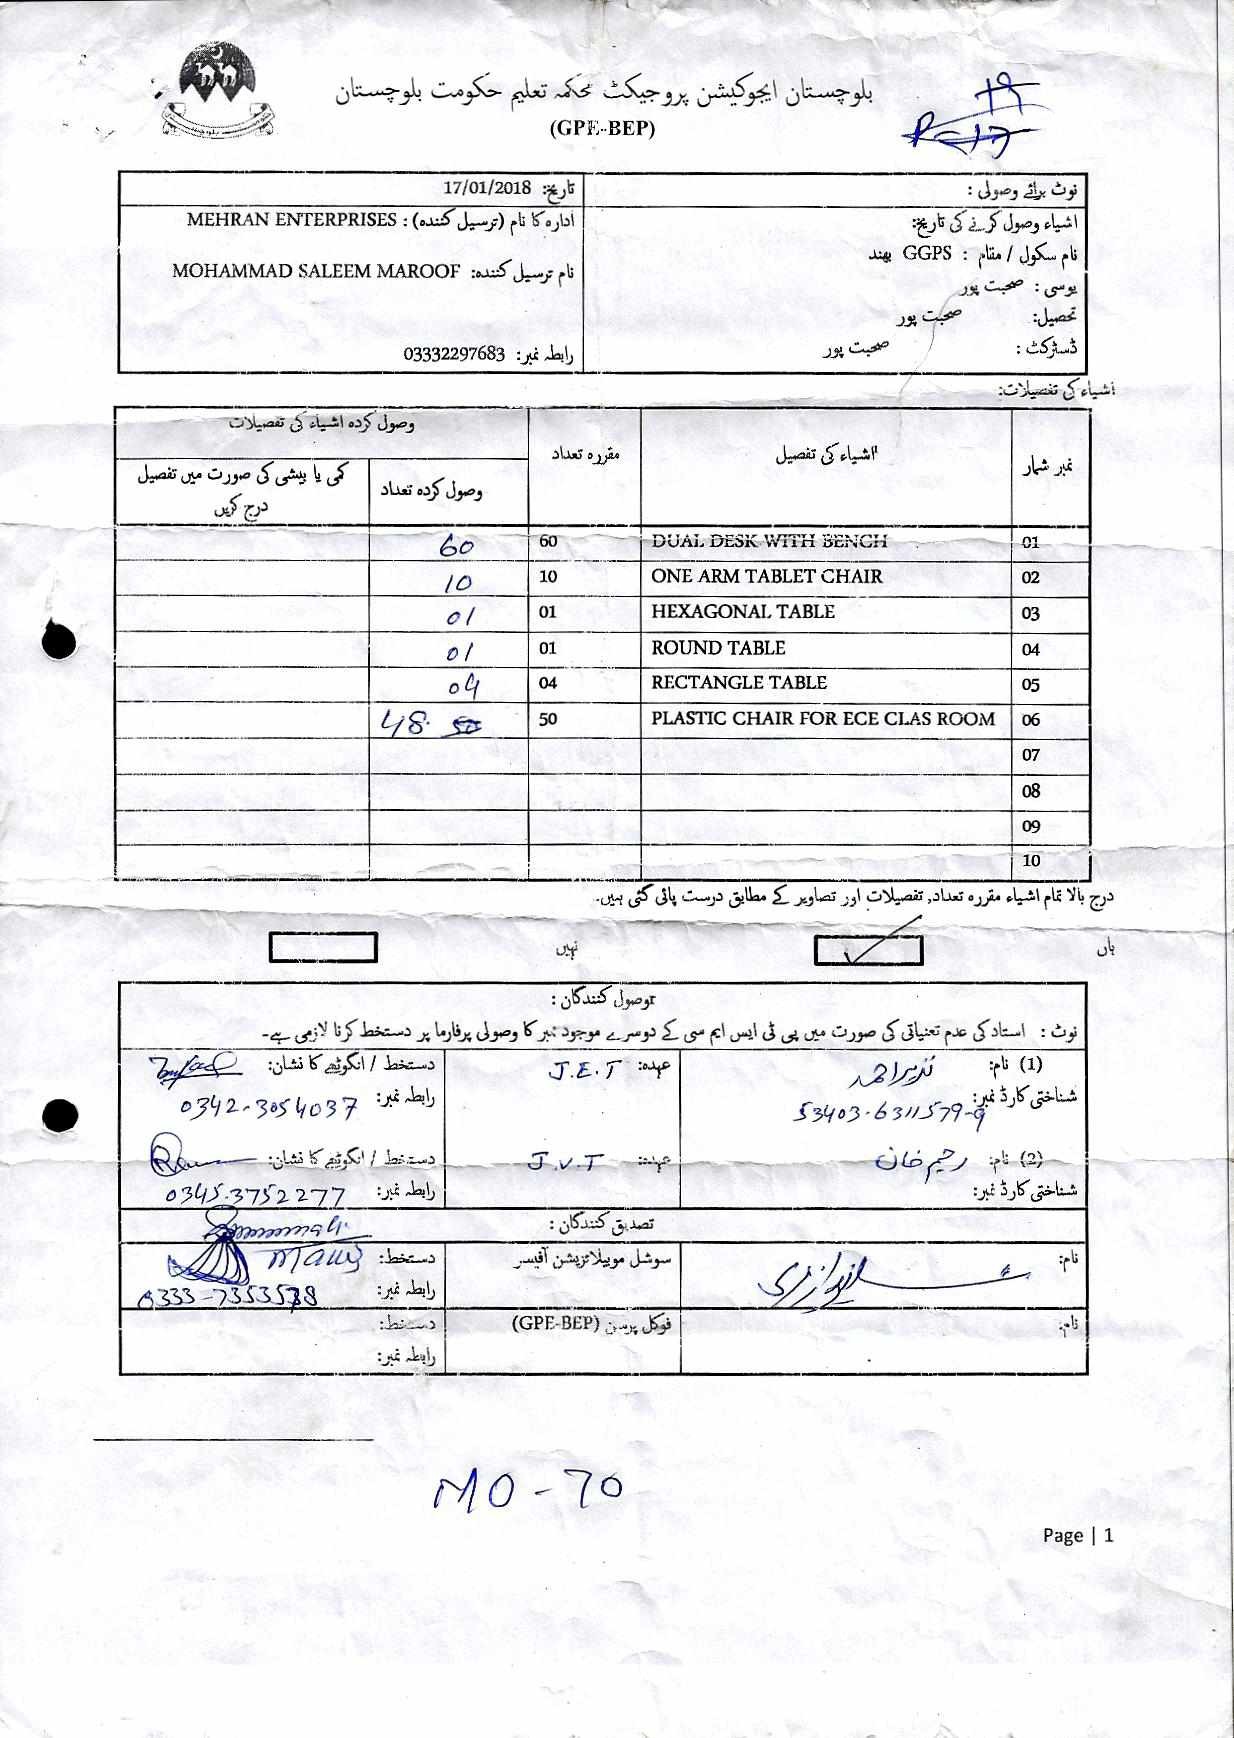 بلوچستان ایجوکیشن پروجیکٹ محکمہ تعلیم حکومت بلوچستان
(GPE-BEP)
نوٹ برائے وصولی :
تاریخ: 17/01/2018
اشیاء وصول کرنے کی تاریخ:
ادارہ کا نام (ترسیل کنندہ) : MEHRAN ENTERPRISES
نام سکول / مقام : GGPS بھنڈ
نام ترسیل کنندہ: MOHAMMAD SALEEM MAROOF
یوسی : صحبت پور
تحصیل: صحبت پور
ڈسٹرکٹ : صحبت پور
رابطہ نمبر: 03332297683
اشیاء کی تفصیلات:
نمبر شمار اشیاء کی تفصیل مقررہ تعداد وصول کردہ اشیاء کی تفصیلات
وصول کردہ تعداد کمی یا بیشی کی صورت میں تفصیل درج کریں
01 DUAL DESK WITH BENCH 60 60
02 ONE ARM TABLET CHAIR 10 10
03 HEXAGONAL TABLE 01 01
04 ROUND TABLE 01 01
05 RECTANGLE TABLE 04 04
06 PLASTIC CHAIR FOR ECE CLAS ROOM 50 50 48
07
08
09
10
درج بالا تمام اشیاء مقررہ تعداد, تفصیلات اور تصاویر کے مطابق درست پائی گئی ہیں۔
ہاں نہیں
وصول کنندگان :
نوٹ : استاد کی عدم تعنیاتی کی صورت میں پی ٹی ایس ایم سی کے دوسرے موجود ممبر کا وصولی پرفارما پر دستخط کرنا لازمی ہے۔
(1) نام: نذیر احمد عہدہ: J.E.T دستخط / انگوٹھے کا نشان:
شناختی کارڈ نمبر: 53403-6311579-9 رابطہ نمبر: 0342-3054037
(2) نام: رحیم خان عہدہ: J.V.T دستخط / انگوٹھے کا نشان:
شناختی کارڈ نمبر: رابطہ نمبر: 0345-3752277
تصدیق کنندگان :
نام: سوشل موبیلائزیشن آفیسر دستخط:
رابطہ نمبر: 0333-7353578
نام: فوکل پرسن (GPE-BEP) دستخط:
رابطہ نمبر:
MO-70
Page | 1